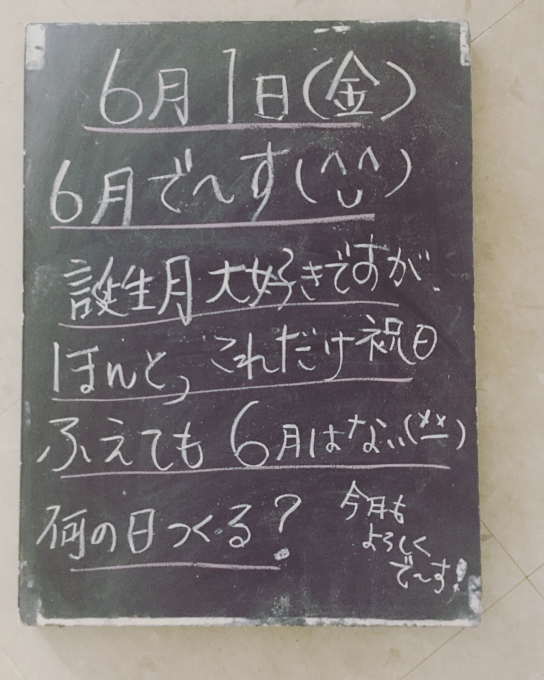 6月1日(金)
6月で〜す(^^)
誕生月大好きですが、
ほんと、これだけ祝日
ふえても6月はない(××)
何の日つくる?
今月も
よろしく
で〜す!